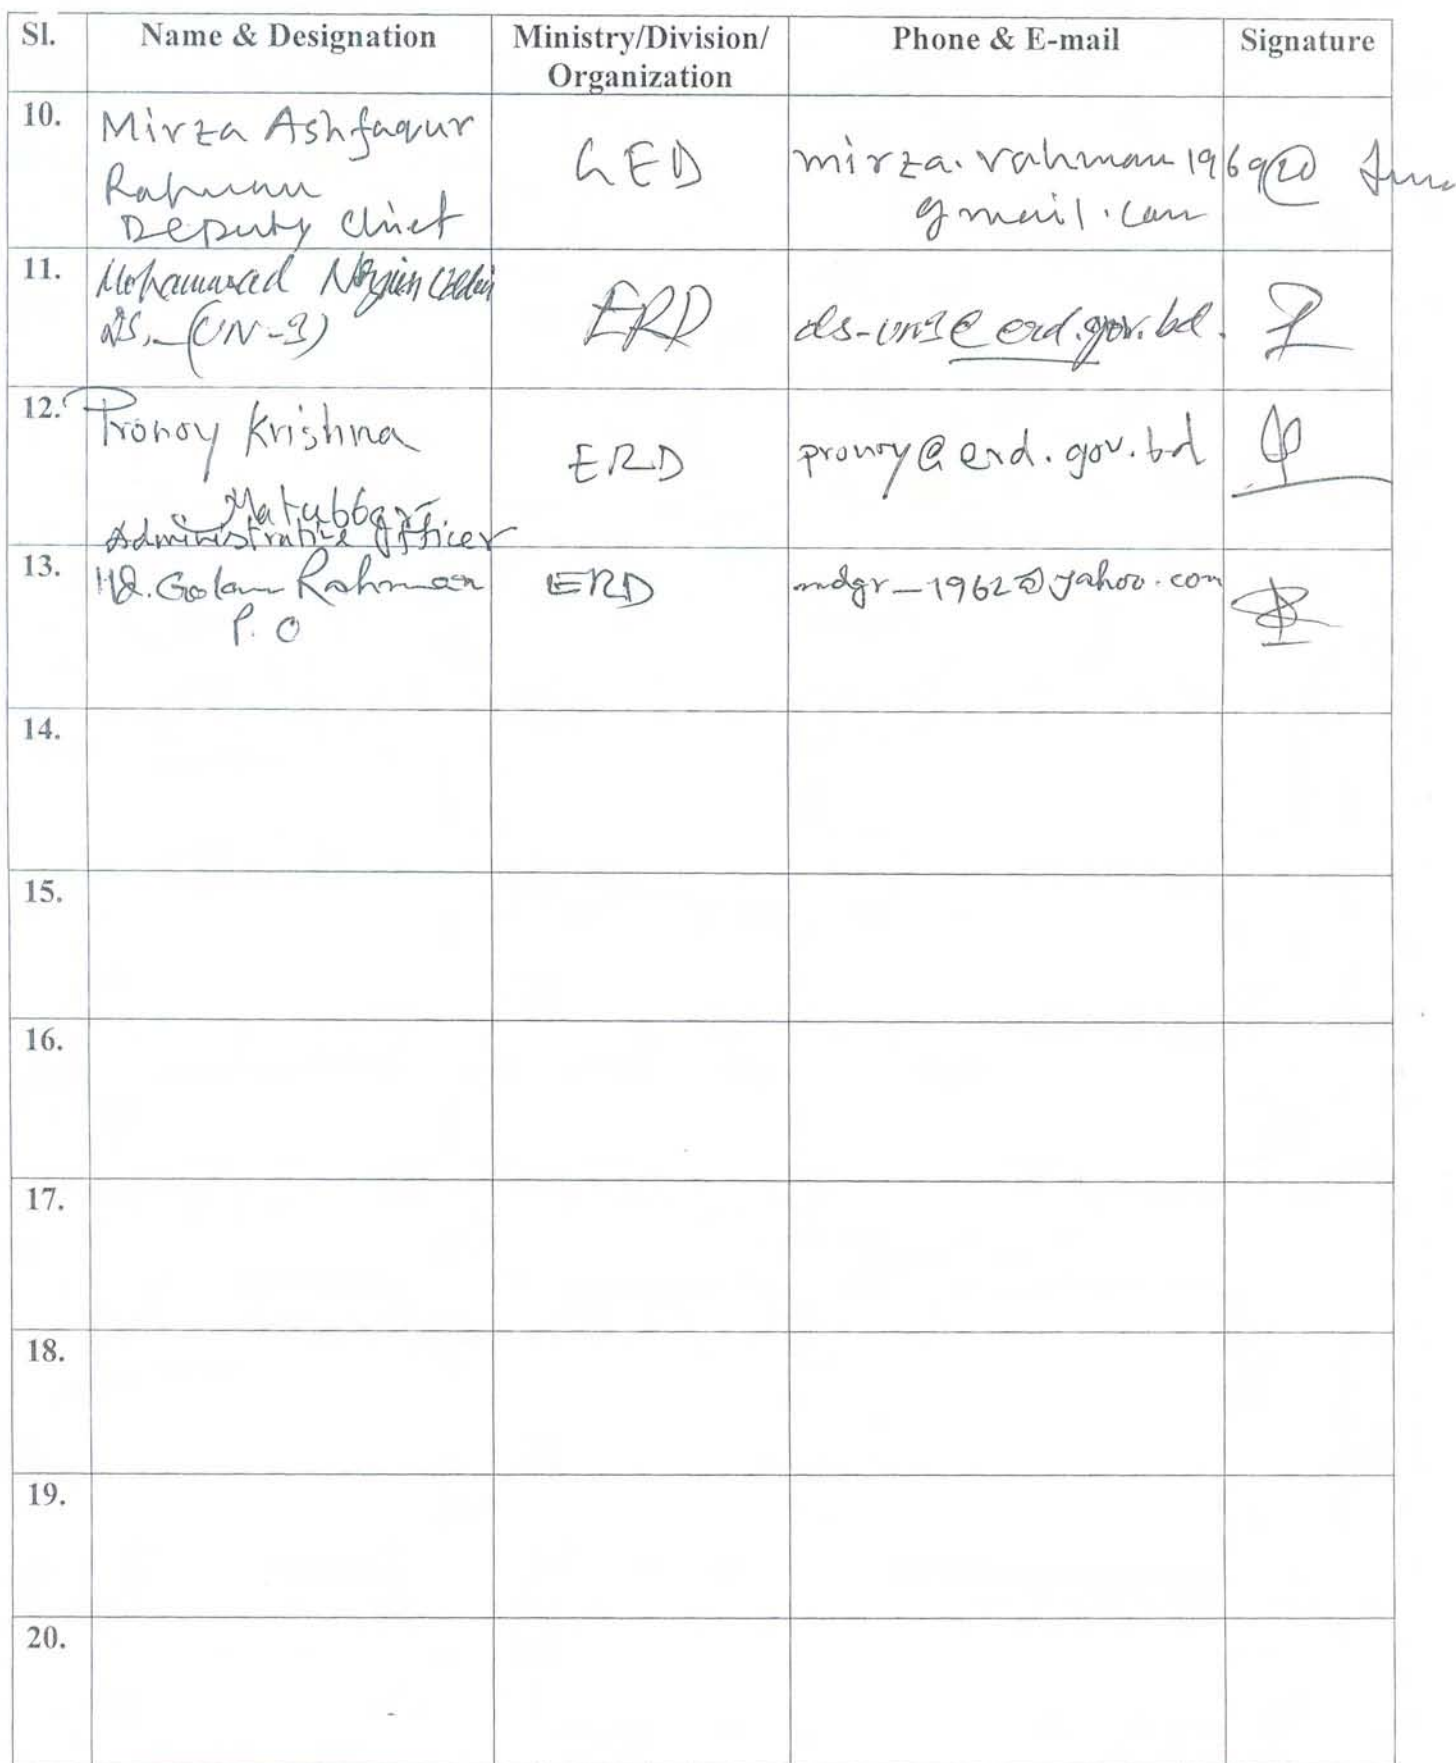 Sl. Name & Designation Ministry/Division/ Phone & E-mail Signature
Organization
10. Mirza Ashfaqur
Rahman
Deputy Chief
GED
mirza.rahman1969@
gmail.com
11. Mohammad Uddin
DS. (UN-3)
ERD
12. Pronoy Krishna
Matubbar
Administrative Officer
ERD
pronoy@erd.gov.bd
13. Md. Golam Rahman
P.O
ERD
mdgr_1962@yahoo.com
14.
15.
16.
17.
18.
19.
20.